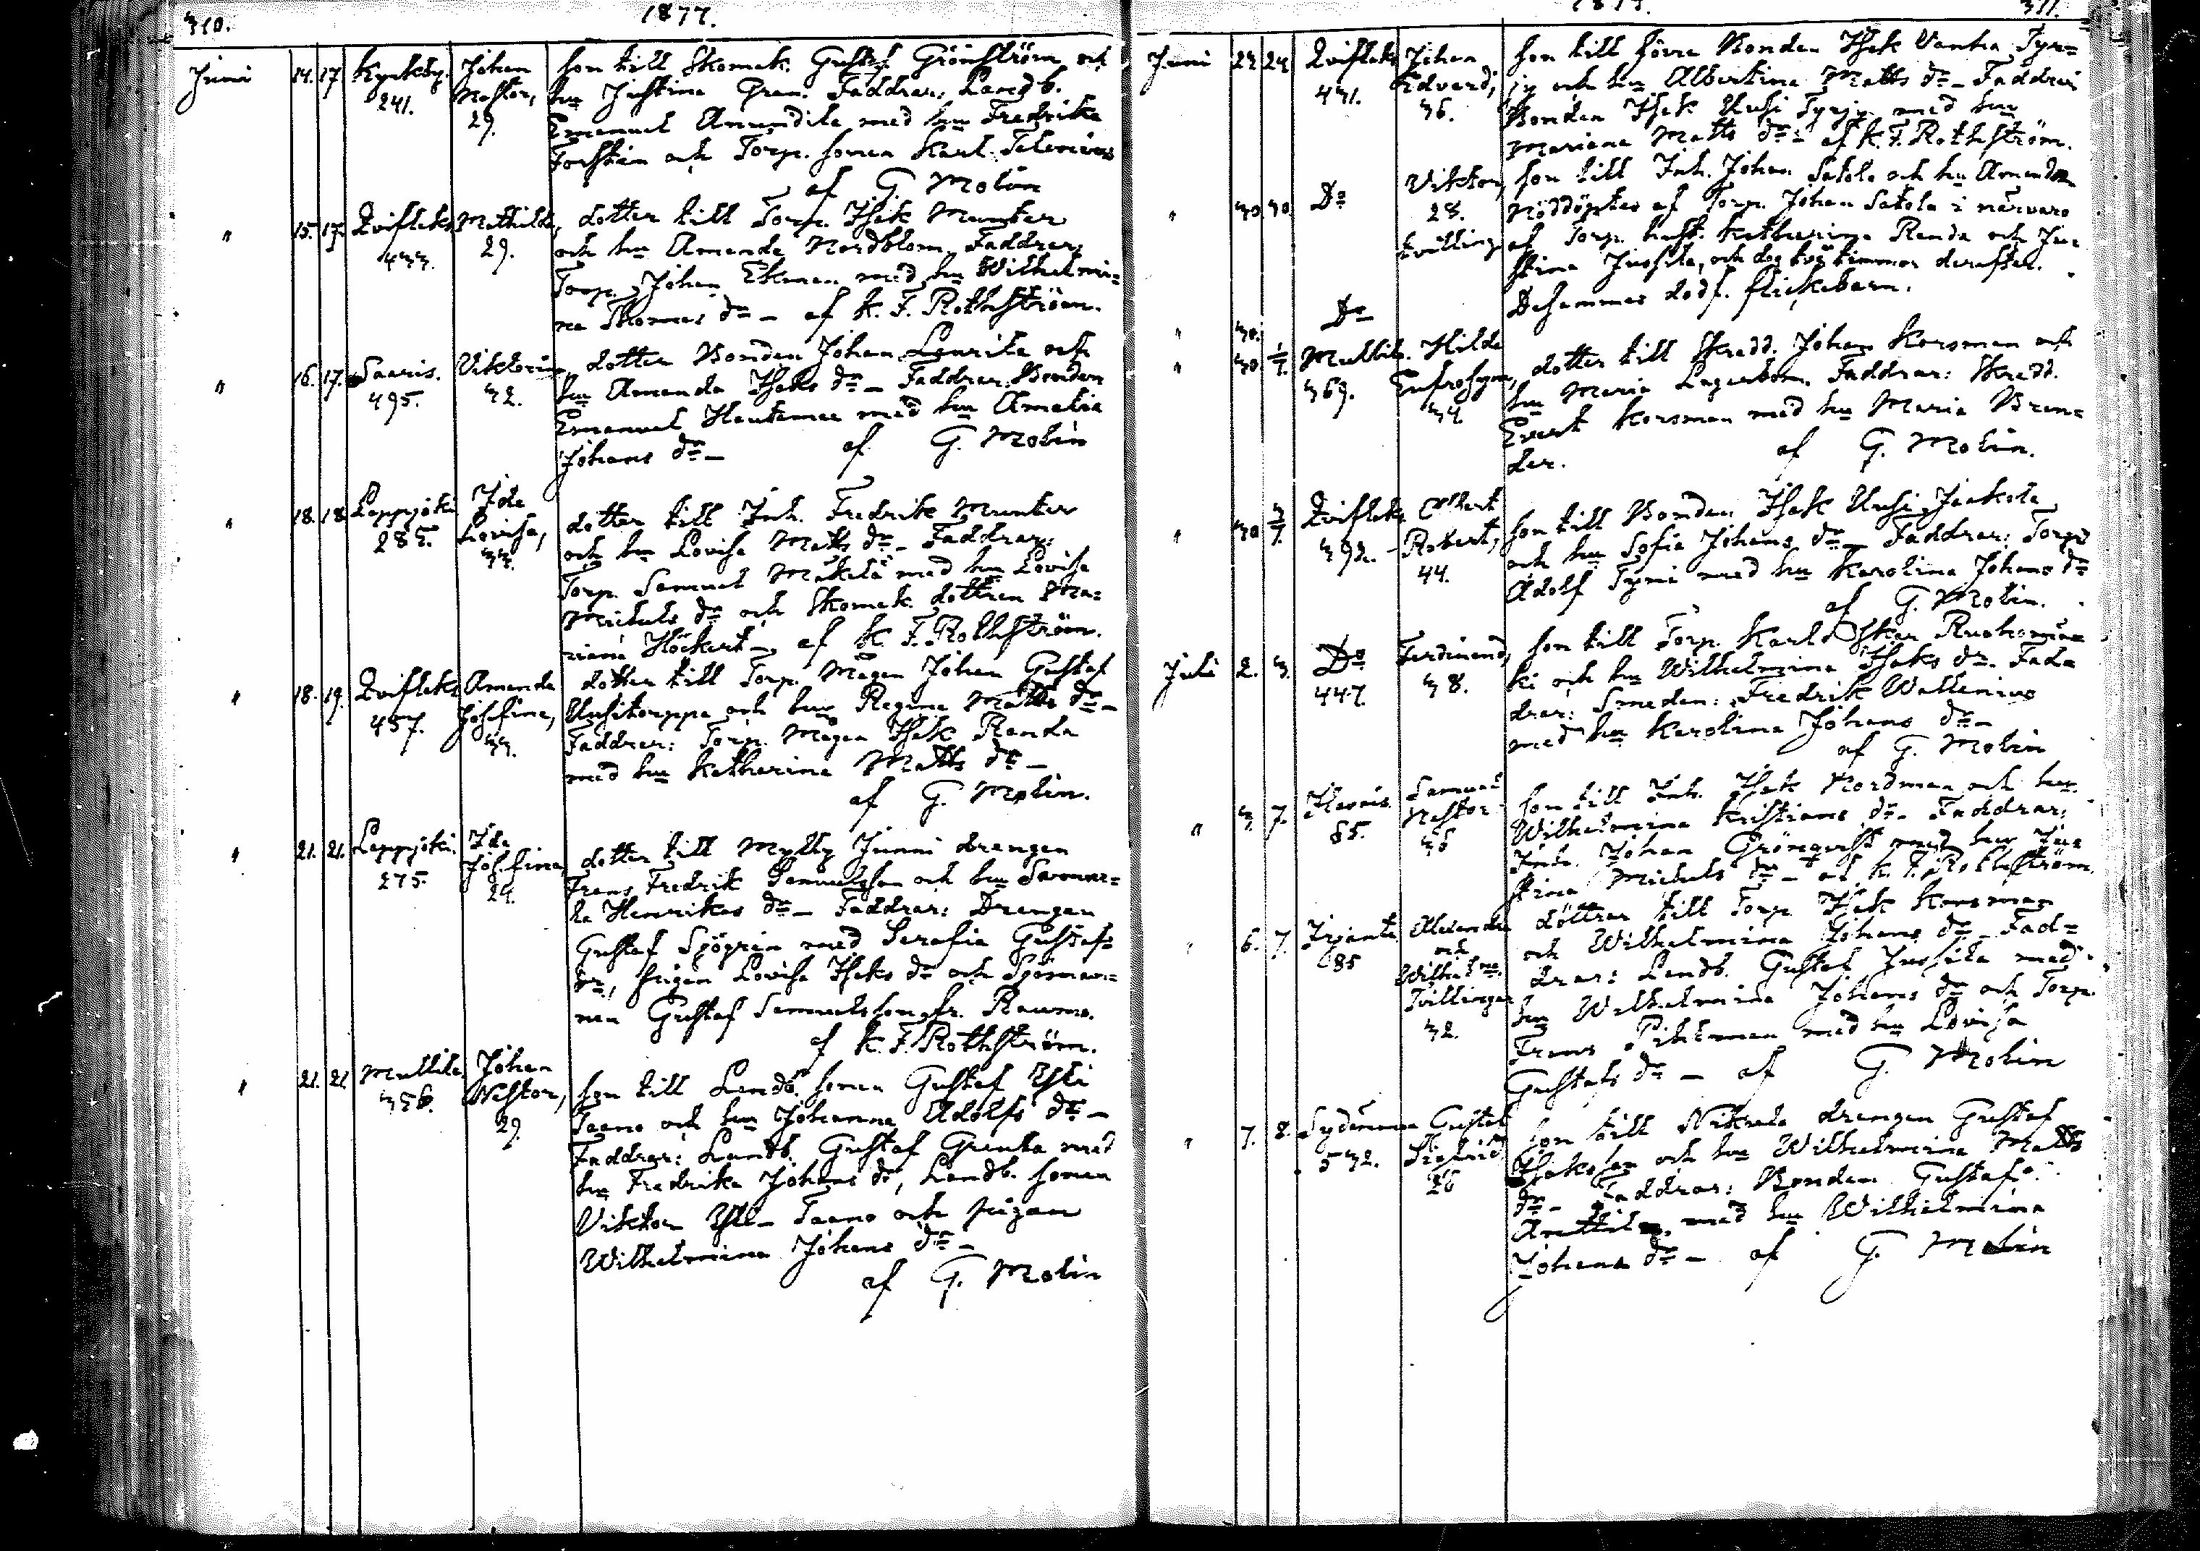 310.
1877.
Juni 14. 17 Kyrkby. 241. Johan Nestor, 29.
son till Skomak. Gustaf Grönström och
hu Justina Gran. Faddrar: Landb.
Emanuel Anundila med hu Fredrika
Forsten och Torp. sonen Karl Telenius
af G. Molin
" 15. 17. Qvifleks 433. Mathilda, 29.
dotter till Torp. Isak Munter
och hu Amanda Nordblom. Faddrar:
Torp. Johan Ekman med hu Wilhelmi-
na Thomas dr – af K. F. Rothström.
" 16. 17. Saaris. 495. Viktoria, 32.
dotter Bonden Johan Laurila och
hu Amanda Isaks dr – Faddrar: Bonden
Emanuel Hautamaa med hu Amalia
Johans dr –
af G. Molin
" 18. 18 Lappjoki 285. Ida Lovisa, 33.
dotter till Inh. Fredrik Munter
och hu Lovisa Matts dr – Faddrar:
Torp. Samuel Mäkelä med hu Lovisa
Michels dr och Skomak. dottren Ma-
riana Höckert – af K. F. Rothström.
" 18. 19. Qvifleks 457. Amanda Josefina, 33.
dotter till Torp. Mågen Johan Gustaf
Uusitorppa och hu Regina Matts dr –
Faddrar: Torp. Mågen Isak Randa
med hu Katharina Matts dr –
af G. Molin.
" 21. 21. Lappjoki. 275. Ida Josefina 24.
dotter till Mylly Junni drengen
Frans Fredrik Samuelsson och hu
Henrikas dr – Faddrar: Drengen
Gustaf Sjögren med Serafia Gustafs
dr, pigan Lovisa Isaks dr och Sjöman-
nen Gustaf Samuelsson fr. Raumo.
af K. F. Rothström.
" 21. 21 Mullila. 356. Johan Nestor, 29.
son till Landb. sonen Gustaf Yli
Taano och hu Johanna Adolfs dr –
Faddrar: Landb. Gustaf Grunta med
hu Fredrika Johans dr, Landb. sonen
Viktor Yli-Taano och pigan
Wilhelmina Johans dr –
af G. Molin
311.
Juni 24 Qvifleks 431. Johan Edvard, 36.
son till Bonden Isak Vanha Tyr-
jy och hu Albertina Matts dr – Faddrar
Bonden Isak Uusi Tyrjy med hu
Mariana Matts dr – af K. F. Rothström.
" 30 30. Do Viktor, 28. tvilling
son till Inh. Johan Satola och hu Amanda
Nöddöptes af Torp. Johan Satola i närvaro
af Torp. hust. Katharina Randa och Ju-
stina Jussila, och dog två timmar derefter.
" 30. Do
Desammas dödf. flickebarn.
" 30 1/7. Mullila. 369. Hilda Eufrosyna, 34
dotter till Skradd. Johan Korsman och
hu Maria Lagerbom. Faddrar: Skradd.
Evert Korsman med hu Maria Bran-
der. af G. Molin.
" 30 3/7. Qvifleks 392. Albert Robert, 44.
son till Bonden Isak Uusi Jaakola
och hu Sofia Johans dr – Faddrar: Torp.
Adolf Tyni med hu Karolina Johans dr
af G. Molin.
Juli 2. 3. Do 447. Ferdinand, 38.
son till Torp. Karl Oskar Ruohomä-
ki och hu Wilhelmina Isaks dr. Fadd
drar: Smeden Fredrik Wallenius
med hu Karolina Johans dr –
af G. Molin
" 3. 7. 85. Samuel Nestor
son till Inh. Isak Nordman och hu
Wilhelmina Kristians dr – Faddrar:
Inh. Johan Grönqvist med hu Jus
tina Michels dr – af K. F. Rothström.
" 6. 7. Irjanta 685 och Wilhelma. Tvillingar 32.
döttrar till Torp. Isak Korsman
och Wilhelmina Johans dr – Fad-
drar: Landb. Gustaf Jussila med
hu Wilhelmina Johans dr och Torp.
Frans Pihlman med hu Lovisa
Gustafs dr – af G. Molin
" 7. 8. Sydänmaa 532. Gustaf Sigfrid 26
son till Nikula drengen Gustaf
Isaksson och hu Wilhelmina Matts
dr – Faddrar: Bonden Gustaf
Anttila med hu Wilhelmina
Johans dr – af G. Molin